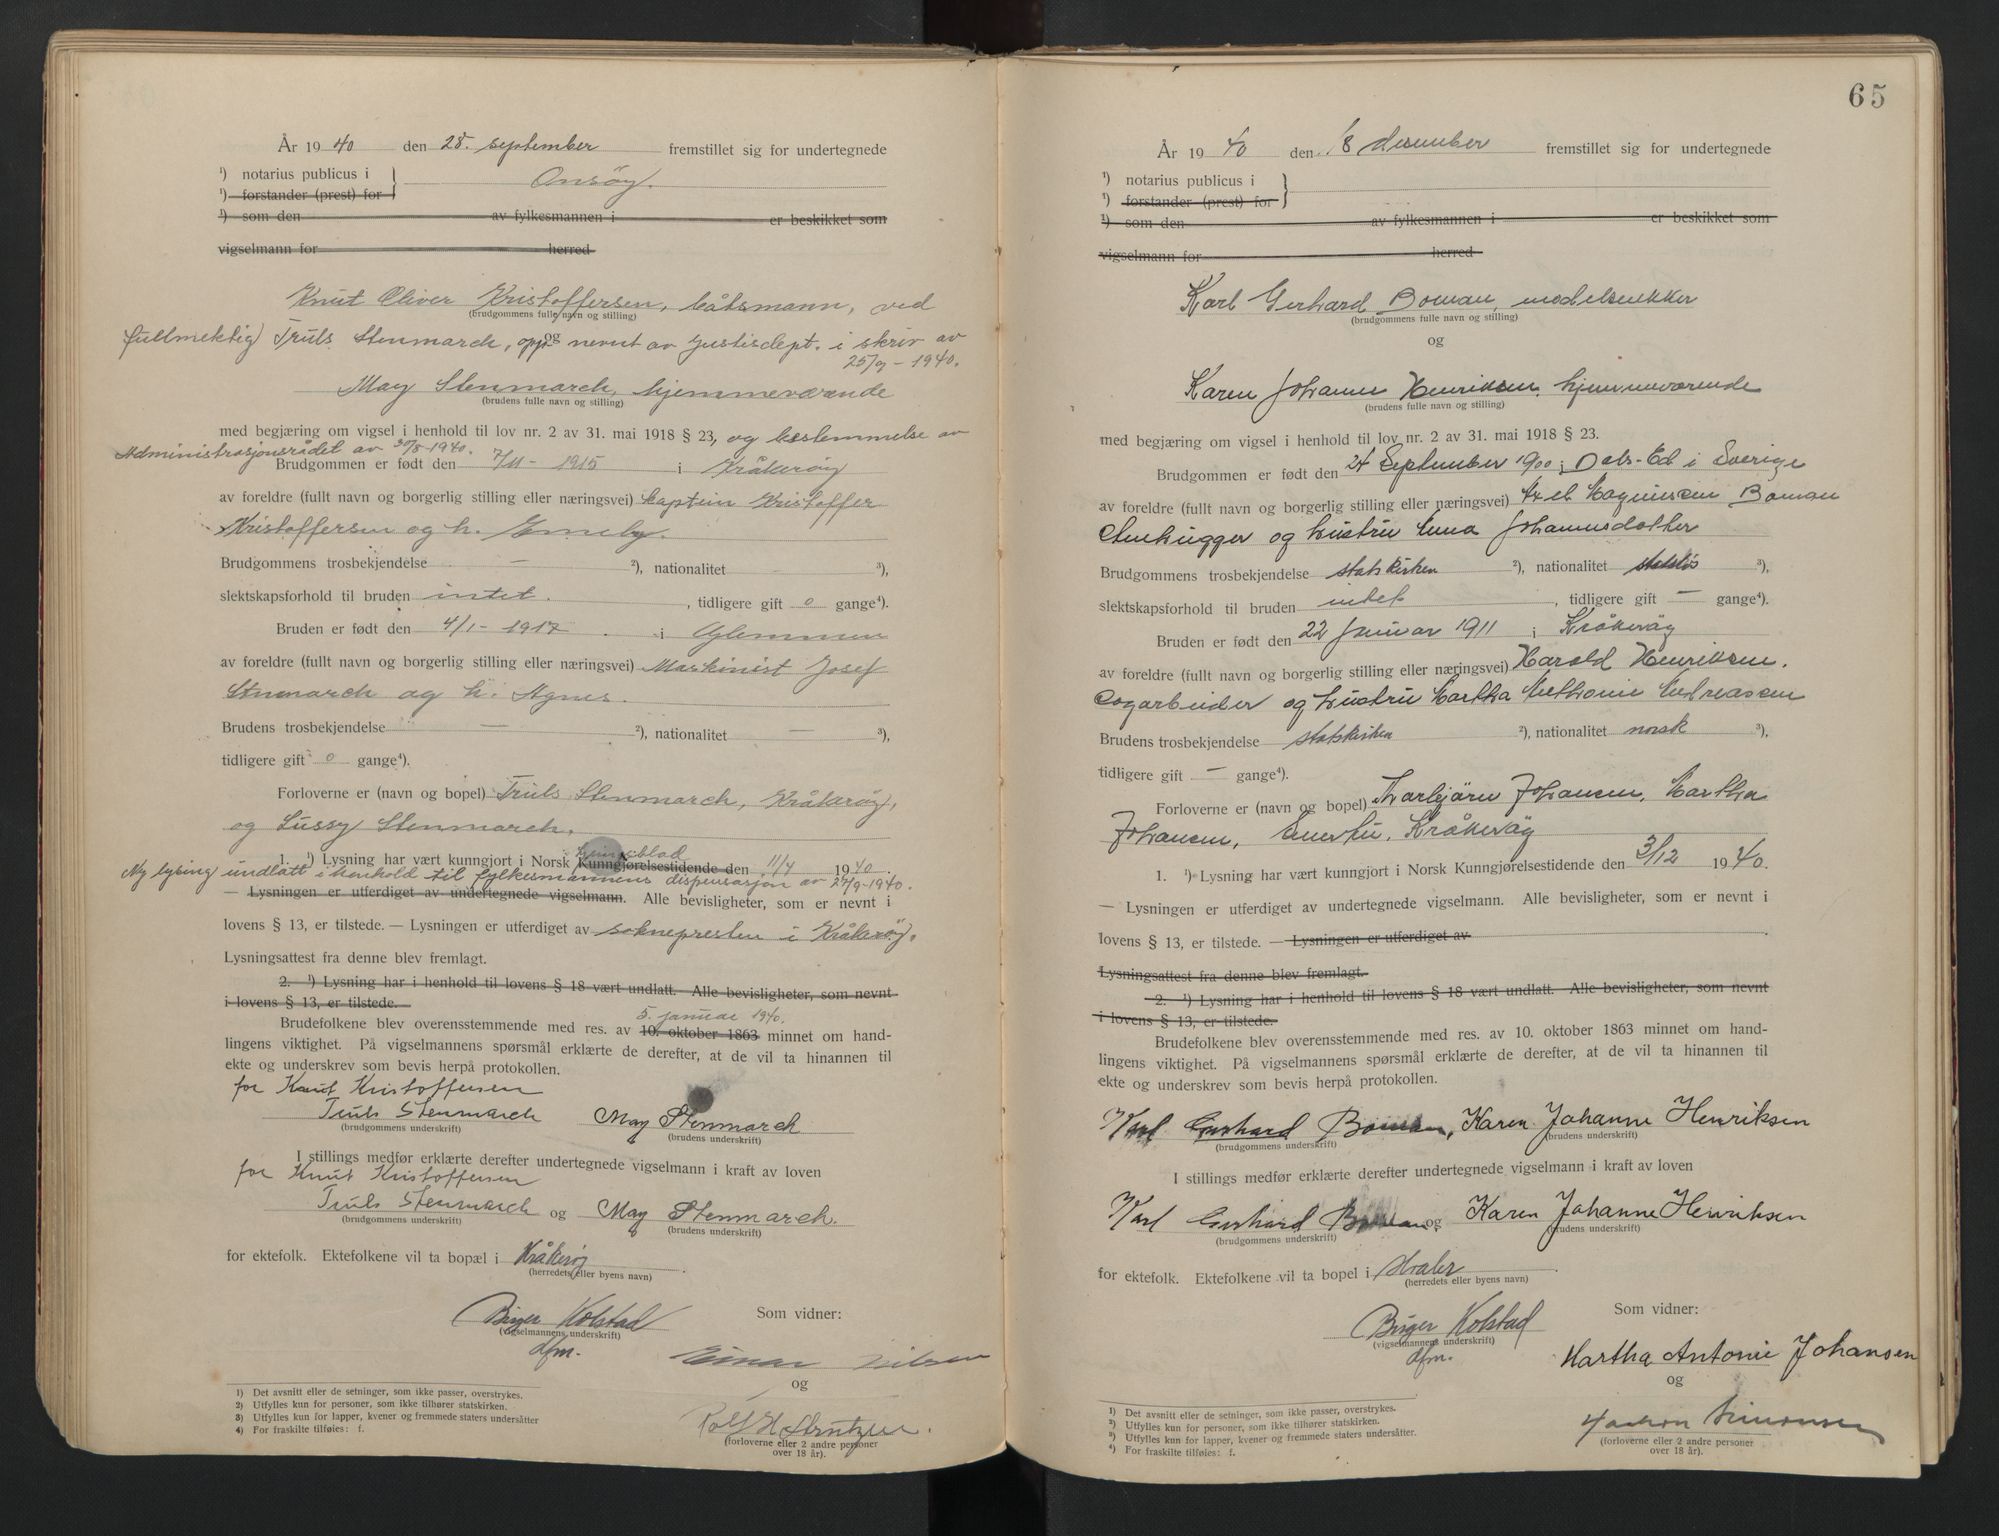 År 1940 den 28. september fremstillet sig for undertegnede
¹) notarius publicus i } Onsøy.
¹) forstander (prest) for
¹) som den av fylkesmannen i er beskikket som
vigselmann for herred
Knut Oliver Kristoffersen, båtsmann, ved
(brudgommens fulle navn og stilling)
fullmektig Truls Stenmarch, opp og nevnt av Justisdept. i skriv av
25/9-1940.
May Stenmarch, hjemmeværende
(brudens fulle navn og stilling)
med begjæring om vigsel i henhold til lov nr. 2 av 31. mai 1918 § 23, og bestemmelse av
Administrasjonsrådet av 30/8-1940.
Brudgommen er født den 7/11-1915 i Kråkerøy
av foreldre (fullt navn og borgerlig stilling eller næringsvei) kaptein Kristoffer
Kristoffersen og h. Emely.
Brudgommens trosbekjendelse — ²), nationalitet ³),
slektskapsforhold til bruden intet. , tidligere gift 0 gange⁴).
Bruden er født den 4/1-1917. i Glemmen
av foreldre (fullt navn og borgerlig stilling eller næringsvei) Maskinist Josef
Stenmarch og h. Agnes.
Brudens trosbekjendelse — ²), nationalitet — ³),
tidligere gift 0 gange⁴).
Forloverne er (navn og bopel) Truls Stenmarch, Kråkerøy,
og Lussy Stenmarch.
lysingsblad
1. ¹) Lysning har vært kunngjort i Norsk Kunngjørelsestidende den 11/4 1940.
Ny lysing undlatt i henhold til fylkesmannens dispensasjon av 27/9-1940.
— Lysningen er utferdiget av undertegnede vigselmann. Alle bevisligheter, som er nevnt i
lovens § 13, er tilstede. — Lysningen er utferdiget av soknepresten i Kråkerøy.
Lysningsattest fra denne blev fremlagt.
2. ¹) Lysning har i henhold til lovens § 18 vært undlatt. Alle bevisligheter, som nevnt
i lovens § 13, er tilstede.
5. januar 1940.
Brudefolkene blev overensstemmende med res. av 10. oktober 1863 minnet om hand-
lingens viktighet. På vigselmannens spørsmål erklærte de derefter, at de vil ta hinannen til
ekte og underskrev som bevis herpå protokollen.
for Knut Kristoffersen
Truls Stenmarch May Stenmarch
(brudgommens underskrift) (brudens underskrift)
I stillings medfør erklærte derefter undertegnede vigselmann i kraft av loven
for Knut Kristoffersen
Truls Stenmarch og May Stenmarch.
(brudgommens underskrift) (brudens underskrift)
for ektefolk. Ektefolkene vil ta bopæl i Kråkerøy
(herredets eller byens navn)
Birger Kolstad Som vidner:
(vigselmannens underskrift)
dfm. Einar Nilsen
og
Rolf H
(forloverne eller 2 andre personer
over 18 år).
1) Det avsnitt eller de setninger, som ikke passer, overstrykes.
2) Utfylles kun for personer, som ikke tilhører statskirken.
3) Utfylles kun for lapper, kvener og fremmede staters undersåtter
4) For fraskilte tilføies: f.
65
År 1940 den 18 desember fremstillet sig for undertegnede
¹) notarius publicus i }
¹) forstander (prest) for
¹) som den av fylkesmannen i er beskikket som
vigselmann for herred
Karl Gerhard Boman, modelsnekker
(brudgommens fulle navn og stilling)
og
Karen Johanne Henriksen, hjemmeværende
(brudens fulle navn og stilling)
med begjæring om vigsel i henhold til lov nr. 2 av 31. mai 1918 § 23.
Brudgommen er født den 24 September 1900 i Dals-Ed i Sverige
av foreldre (fullt navn og borgerlig stilling eller næringsvei) Axel Magnussen Boman
Stenhugger og hustru Johannesdotter
Brudgommens trosbekjendelse statskirken ²), nationalitet statsløs ³),
slektskapsforhold til bruden intet , tidligere gift — gange⁴).
Bruden er født den 22 Januar 1911 i Kråkerøy
av foreldre (fullt navn og borgerlig stilling eller næringsvei) Harald Henriksen.
Sagarbeider og hustru Martha Andreassen
Brudens trosbekjendelse statskirken ²), nationalitet norsk ³),
tidligere gift — gange⁴).
Forloverne er (navn og bopel) Thorbjørn Johansen, Martha
Johansen, Kråkerøy
1. ¹) Lysning har vært kunngjort i Norsk Kunngjørelsestidende den 3/12 1940.
— Lysningen er utferdiget av undertegnede vigselmann. Alle bevisligheter, som er nevnt i
lovens § 13, er tilstede. — Lysningen er utferdiget av
Lysningsattest fra denne blev fremlagt.
2. ¹) Lysning har i henhold til lovens § 18 vært undlatt. Alle bevisligheter, som nevnt
i lovens § 13, er tilstede.
Brudefolkene blev overensstemmende med res. av 10. oktober 1863 minnet om hand-
lingens viktighet. På vigselmannens spørsmål erklærte de derefter, at de vil ta hinannen til
ekte og underskrev som bevis herpå protokollen.
Karl Gerhard Boman, Karen Johanne Henriksen
(brudgommens underskrift) (brudens underskrift)
I stillings medfør erklærte derefter undertegnede vigselmann i kraft av loven
Karl Gerhard Boman og Karen Johanne Henriksen
(brudgommens underskrift) (brudens underskrift)
for ektefolk. Ektefolkene vil ta bopel i Hvaler
(herredets eller byens navn)
Birger Kolstad Som vidner:
(vigselmannens underskrift)
dfm. Martha Antonie Johansen
og
Simonsen
(forloverne eller 2 andre personer
over 18 år).
¹) Det avsnitt eller de setninger, som ikke passer, overstrykes.
²) Utfylles kun for personer, som ikke tilhører statskirken.
³) Utfylles kun for lapper, kvener og fremmede staters undersåtter.
⁴) For fraskilte tilføies: f.